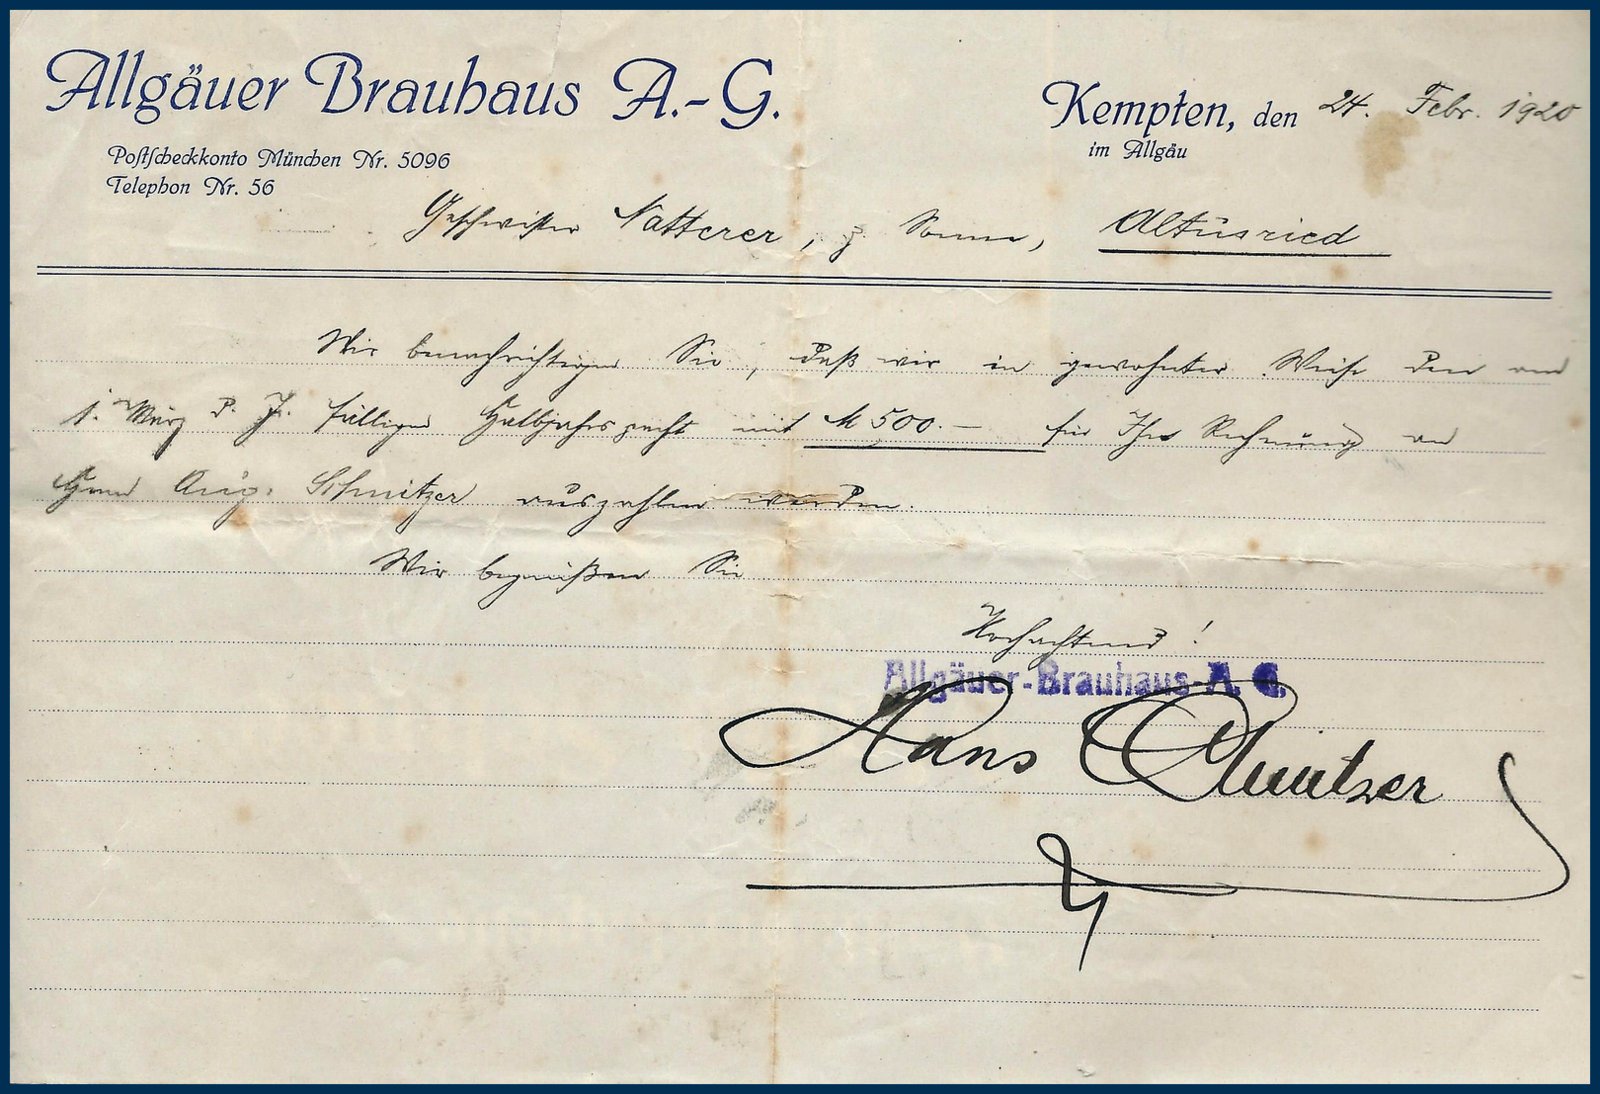 Allgäuer Brauhaus A.-G.
Kempten, den 24. Febr. 1920
im Allgäu
Postscheckkonto München Nr. 5096
Telephon Nr. 56
Geschwister Natterer, z. Sonne, Altusried
Wir benachrichtigen Sie, daß wir in gewohnter Weise den am
1. März d. J. fälligen Halbjahrspacht mit M 500.— für Ihre Rechnung an
Herrn Aug. Schnitzer auszahlen werden.
Wir begrüßen Sie
Hochachtend!
Allgäuer-Brauhaus-A. G.
Hans Schnitzer